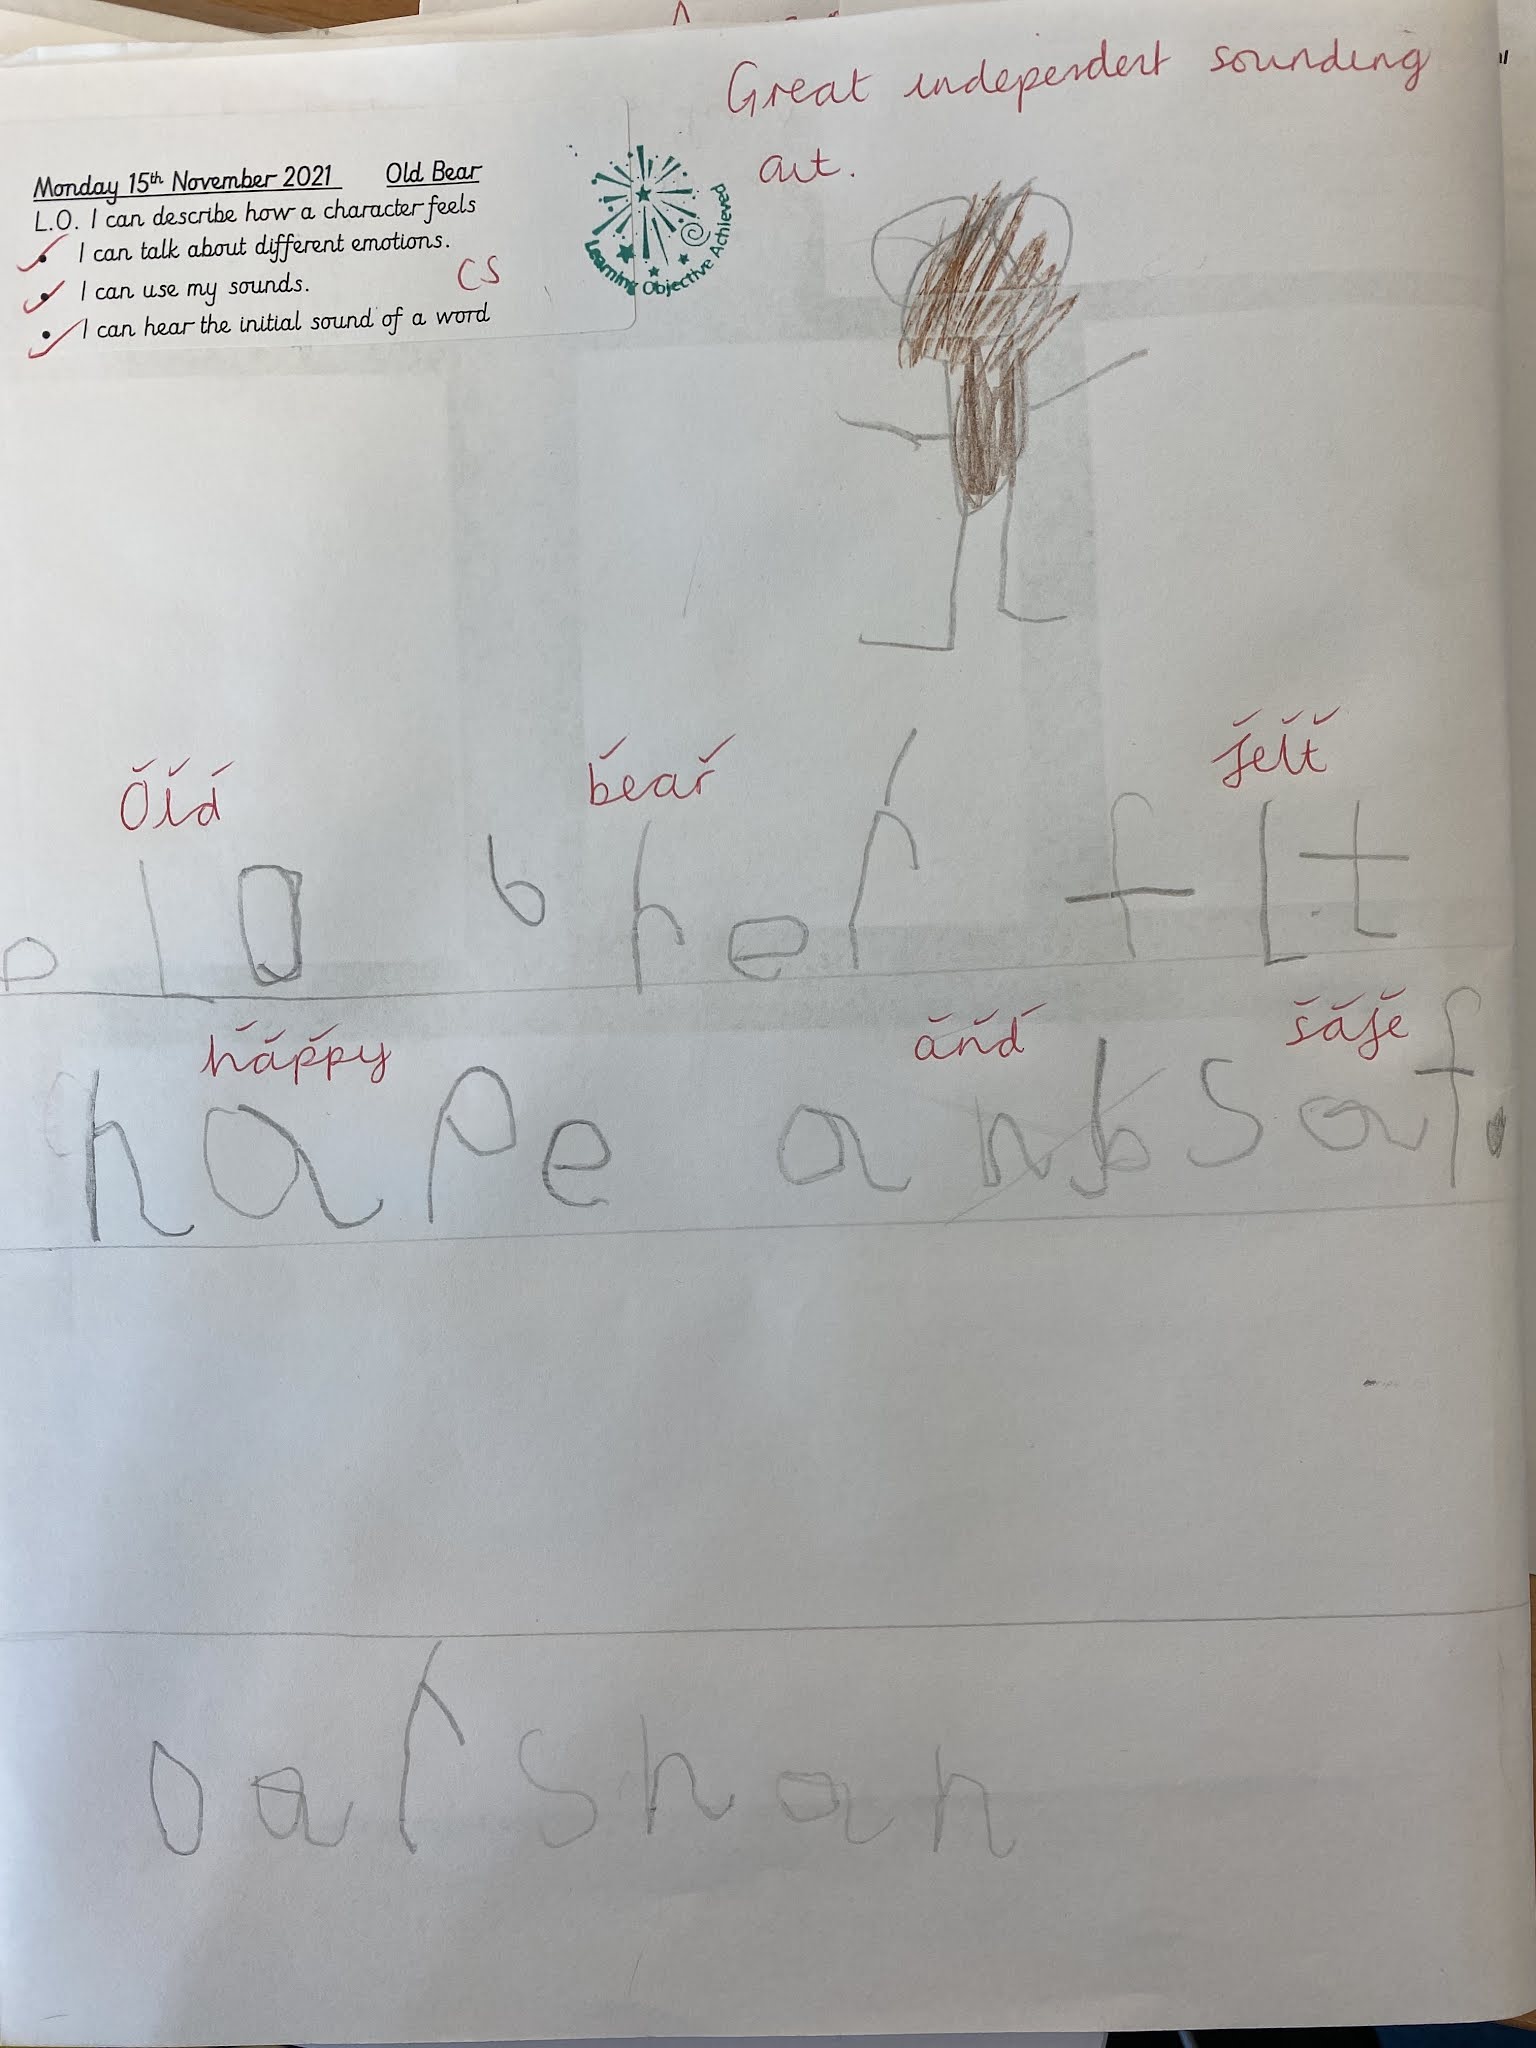 Great independent sounding
out.
Monday 15th November 2021 Old Bear
L.O. I can describe how a character feels
• I can talk about different emotions.
• I can use my sounds. CS
• I can hear the initial sound of a word
Learning Objective Achieved
Old bear felt
o l o b h e r f l t
happy and safe
h a p e a n b s a f .
o a r s h a n